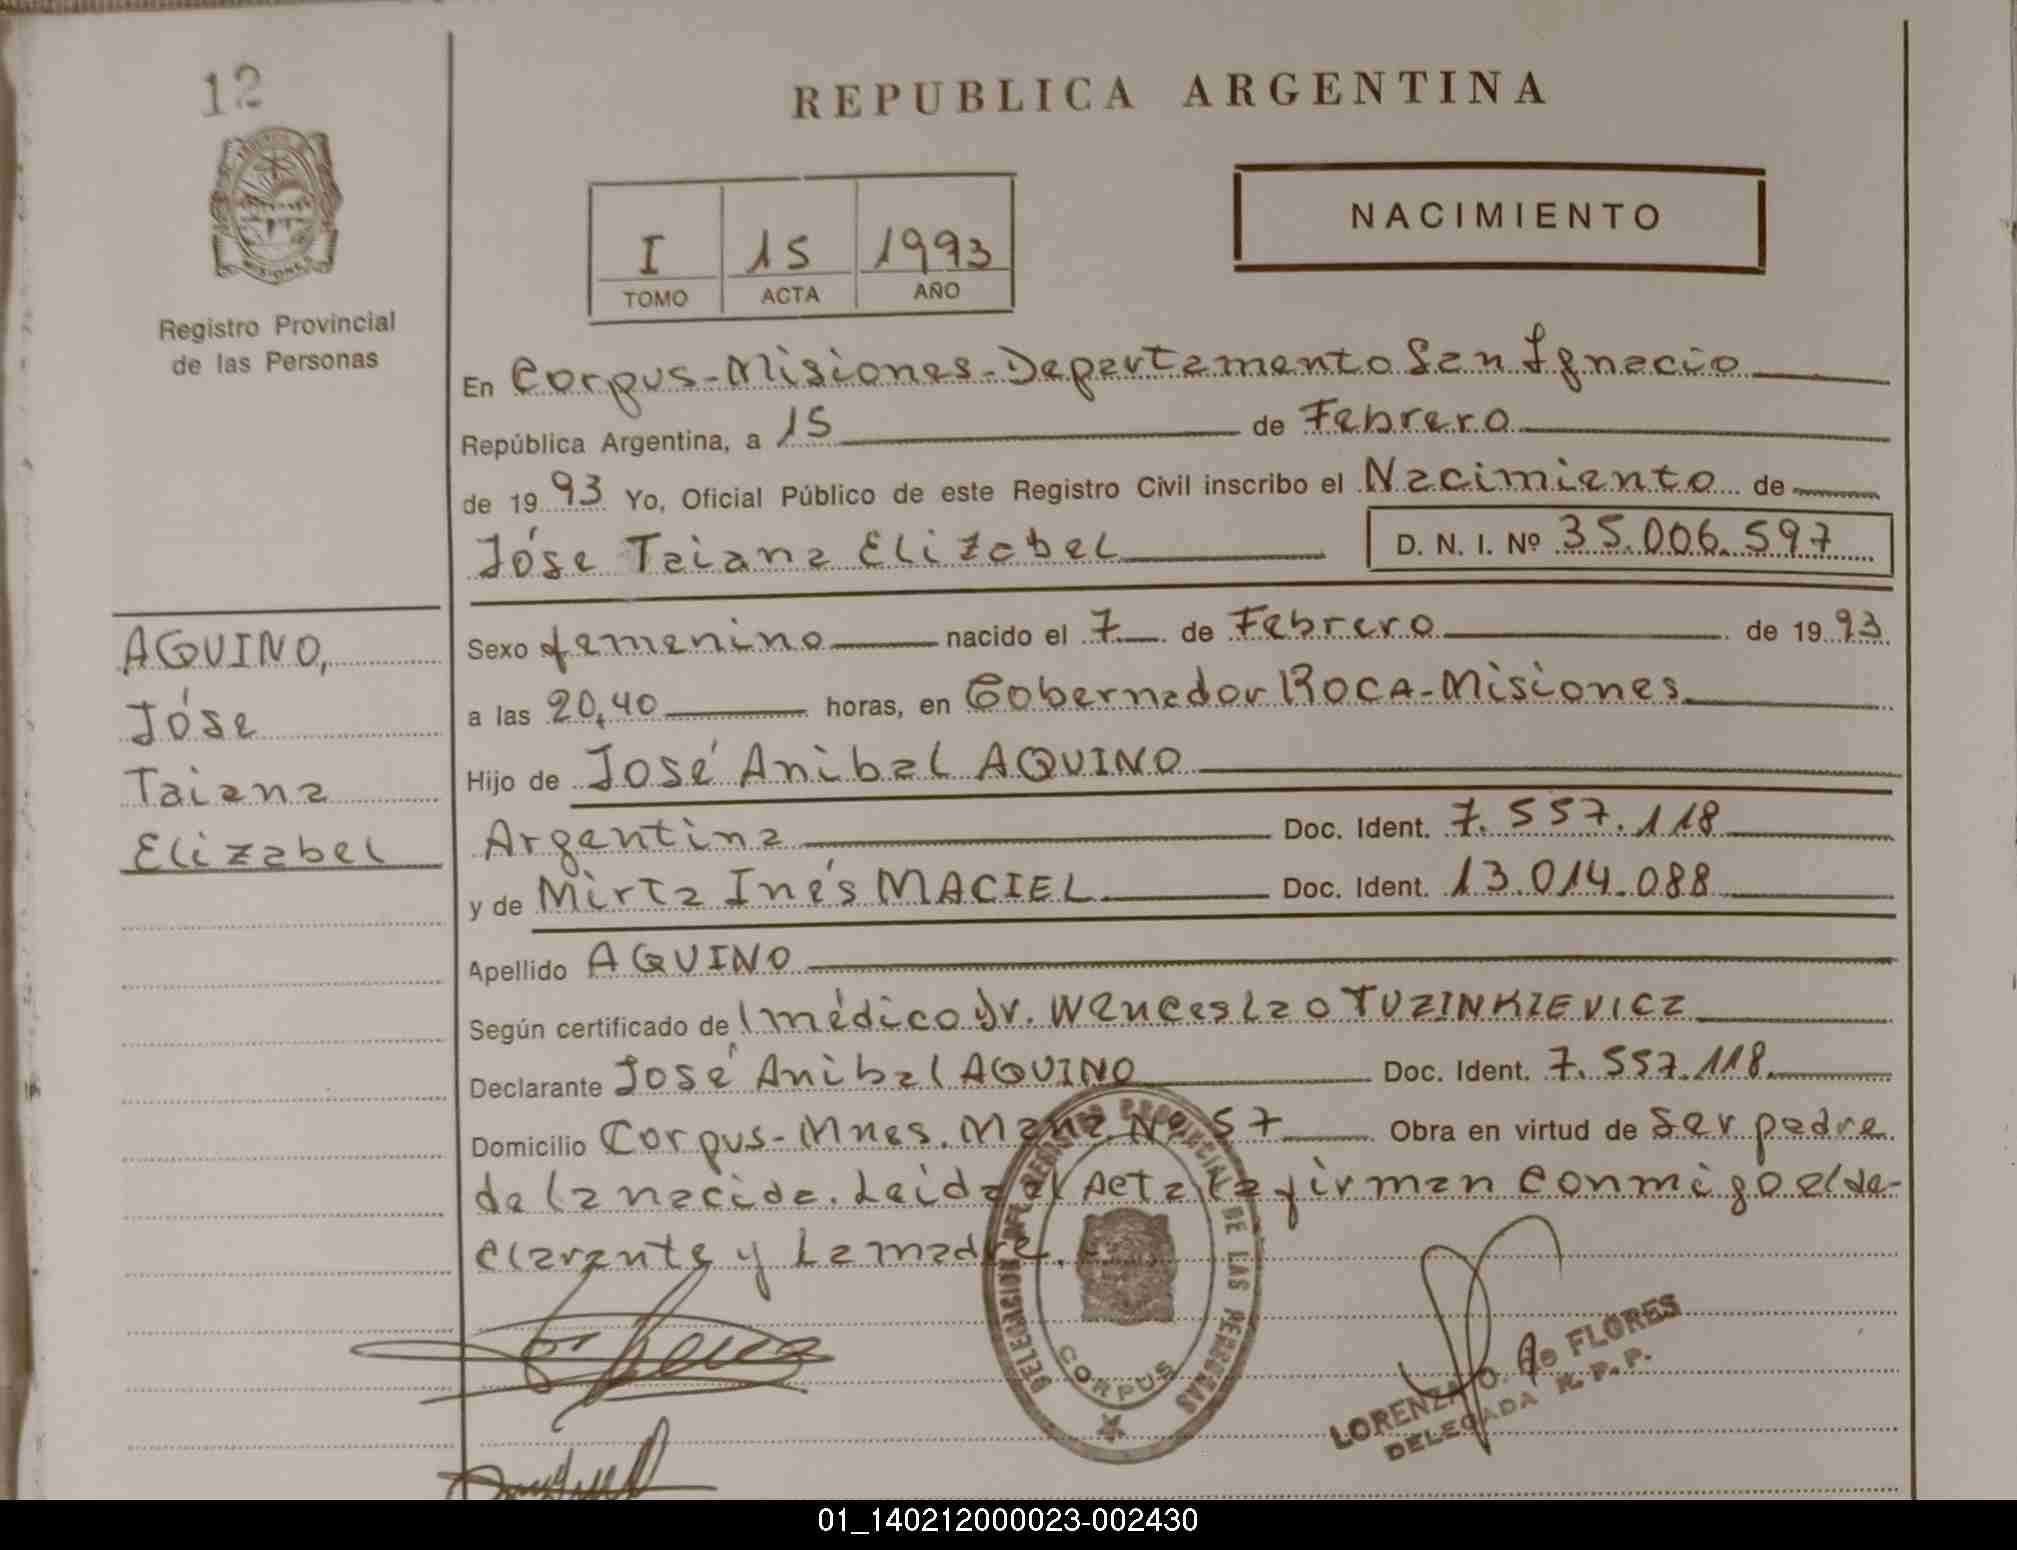 12
REPUBLICA ARGENTINA
I 15 1993
TOMO ACTA AÑO
NACIMIENTO
MISIONES
Registro Provincial
de las Personas
En Corpus-Misiones-Departamento San Ignacio
República Argentina, a 15 de Febrero
de 1993 Yo, Oficial Público de este Registro Civil inscribo el Nacimiento de
Jóse Taiana Elizabel D. N. I. Nº 35.006.597
AQUINO,
Jóse
Taiana
Elizabel
Sexo femenino nacido el 7 de Febrero de 1993
a las 20,40 horas, en Gobernador ROCA-Misiones
Hijo de José Anibal AQUINO
Argentina Doc. Ident. 7.557.118
y de Mirta Inés MACIEL Doc. Ident. 13.014.088
Apellido AQUINO
Según certificado del médico Dr. Wenceslao TUZINKIEVICZ
Declarante José Anibal AQUINO Doc. Ident. 7.557.118
Domicilio Corpus-Mnes. Manz Nº 57 Obra en virtud de ser padre
de la nacida. Leida el Acta la firman conmigo el de-
clarante y la madre.
DELEGACION DEL REGISTRO PROVINCIAL DE LAS PERSONAS
CORPUS
LORENZA O. de FLORES
DELEGADA R. P. P.
01_140212000023-002430